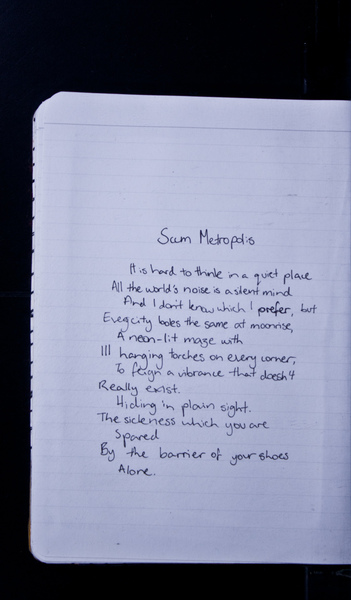 Scum Metropolis
It is hard to think in a quiet place
All the world's noise is a silent mind
And I don't know which I prefer, but
Every city looks the same at moonrise,
A neon-lit maze with
Ill hanging torches on every corner,
To feign a vibrance that doesn't
Really exist.
Hiding in plain sight.
The sickness which you are
Spared
By the barrier of your shoes
Alone.